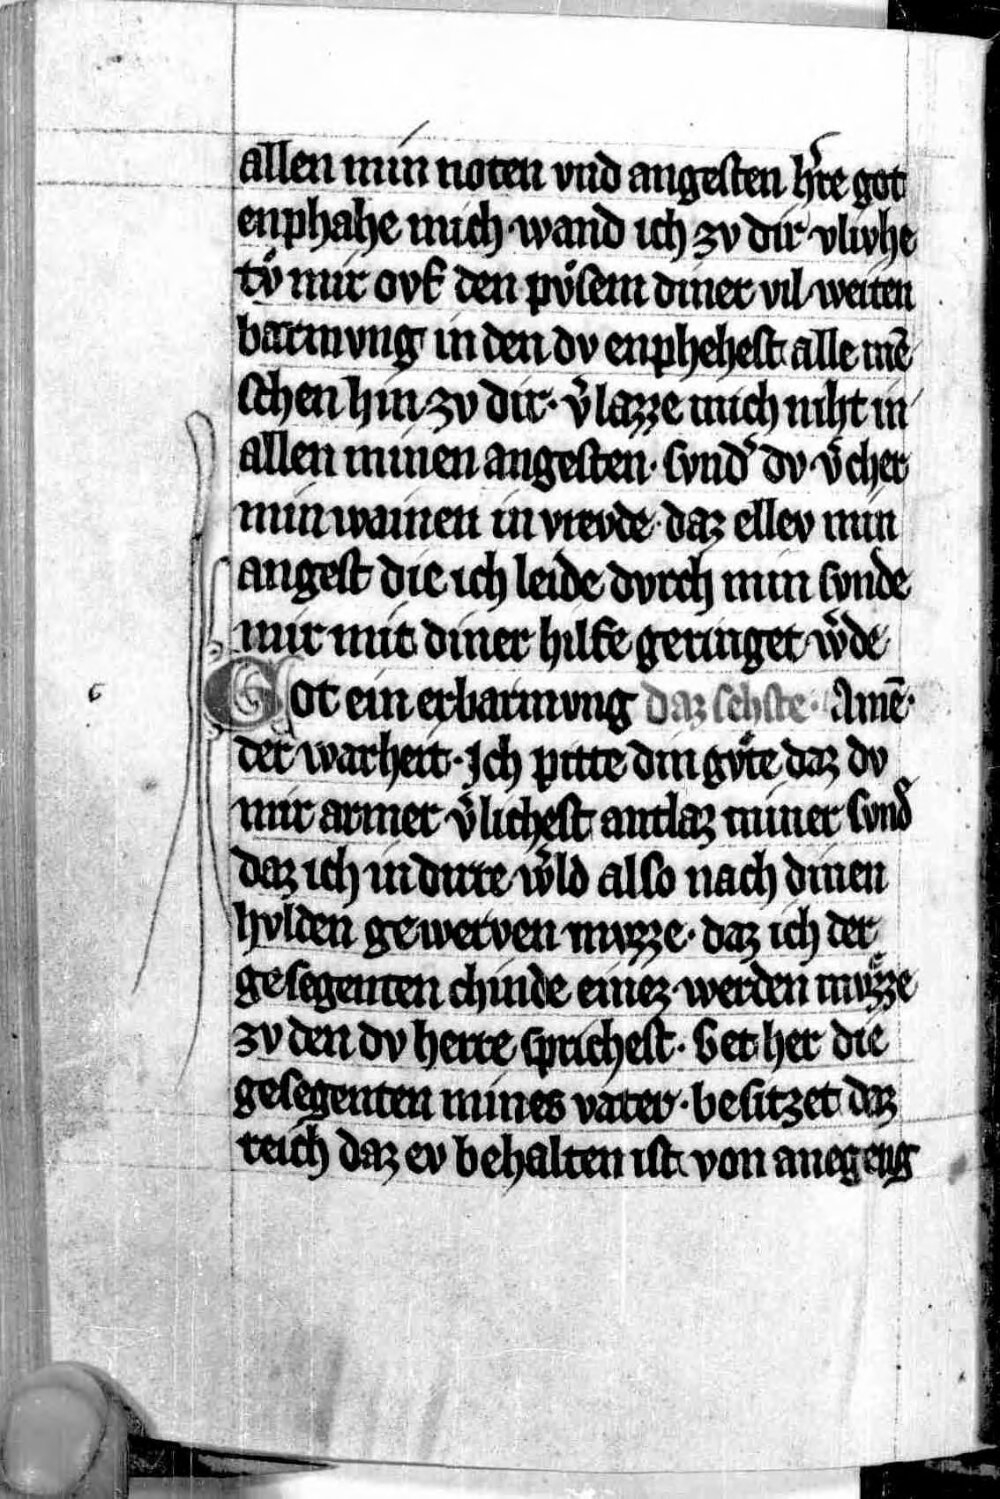 allen min noten vnd angesten hr̄e got
enphahe mich wand ich zv dir vlivhe
tvͦ mir ovf den pöſem diner vil weiten
barmvng in den dv enphehest alle mē
ſchen hin zv dir · v̄lazze mich niht in
allen minen angesten · ſvnd̄ dv · v̄cher
min wainen in vrevde · daz ellev min
angest die ich leide dvrch min ſvnde
mir mit diner hilfe geringet w̄de
Got ein erbarmvng daz ſehſte · Amē ·
der warheit · Ich pitte din gvͤte daz dv
mir armer v̄lichest antlaz miner ſvnd̄
daz ich in dirre w̄ld alſo nach dinen
hvlden gewerven mvzze · daz ich der
geſegenten chinde einez werden mvͤzze
zv den dv herre ſprichest · Get her die
geſegenten mines vater · beſitzet daz
reich daz ev behalten ist von anegeng
c